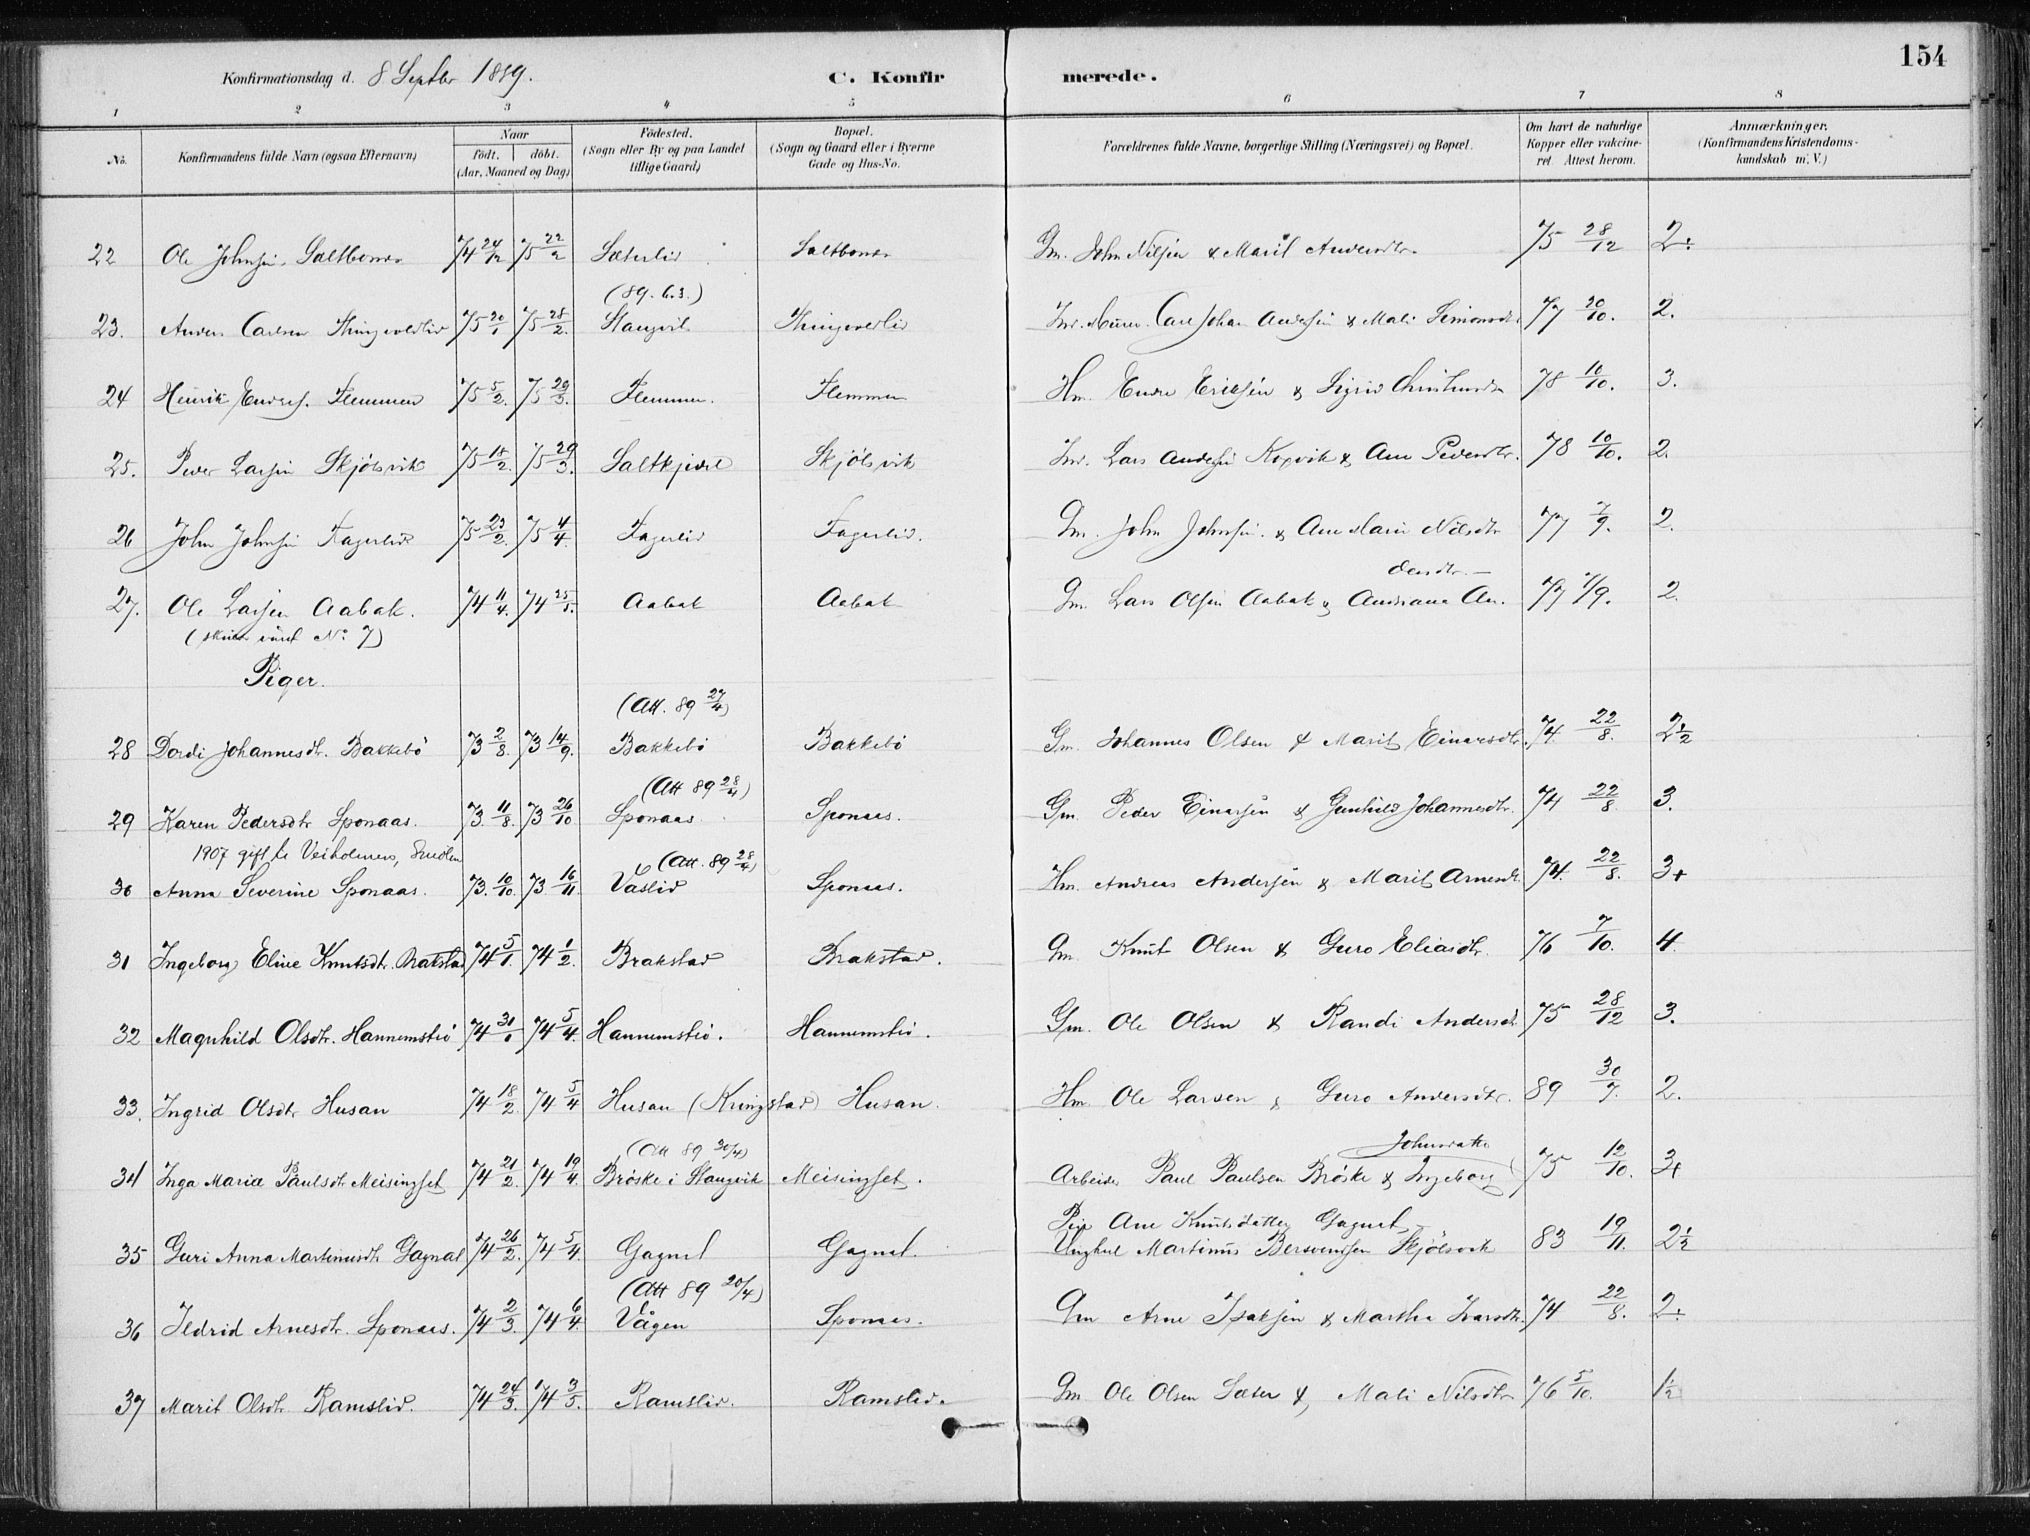 154
Konfirmationsdag d. 8 Septbr 1889. C. Konfirmerede.
1 2 3 4 5 6 7 8
No. Konfirmandens fulde Navn (ogsaa Efternavn) Naar födt. döbt. (Aar, Maaned og Dag) Födested. (Sogn eller By og paa Landet tillige Gaard) Bopæl. (Sogn og Gaard eller i Byerne Gade og Hus-No. Forældrenes fulde Navne, borgerlige Stilling (Næringsvei) og Bopæl. Om havt de naturlige Kopper eller vakcineret. Attest herom. Anmærkninger. (Konfirmandens Kristendomskundskab m. V.)
22 Ole Johnsen 74 24/12 75 22/2 Sæterlid Gm. John Nilsen & Marit Andersdtr. 75 28/12 2÷
(89. 6.3.)
23. Anders Carlsen Thingvoldlid 75 20/1 75 28/2. Stangvik Thingvoldlid Carl Johan Andersen & Mali Simonsdtr 77 20/10. 2.
24 Henrik Endres. Flemmen 75 5/2. 75 29/3. Flemmen. Flemmen Hm. Endre Eriksen & Sigrid 78 10/10. 3.
25. Peder Larsen Skjölsvik 75 18/2. 75 29/3. Saltkjeld Skjölsvik Ind. Lars Andersen Koxvik & Ane Pedersdtr. 78 10/10. 2.
26 John Johnsen Fagerlid 75 23/2. 75 4/4. Fagerlid Fagerlid. Gm. John Johnsen. & Ane Marie Nilsdtr 77 7/9. 2.
27. Ole Larsen Aabak. 74 11/4. 74 25/5. Aabak Aabak Gm. Lars Olsen Aabak & Andriana An. 77 7/9. 2.
dersdtr. —
( været No. 7)
Piger.
(Att. 89 27/4)
28 Dordi Johannesdt. Bakkebö 73 2/8. 73 14/9. Bakkebö Bakkebö Gm. Johannes Olsen & Marit Einarsdtr. 74. 22/8. 2½
(Att 89 28/4)
29 Karen Pedersdtr Sponaas. 73. 11/8. 73 26/10 Sponaas Sponaas. Gm. Peder Einarsen & Gunhild Johannesdtr. 74 22/8 3.
1907 gift te Veiholmen, Smölen
(Att. 89 28/4)
30 Anna Severine Sponaas. 73. 10/10. 73 16/11. Vaslid Sponaas. Hm. Andreas Andersen & Marit Arnesdt. 74. 22/8. 3+
31 Ingeborg Eline Knutsdtr. Brakstad 74 5/1. 74 1/2. Brakstad Brakstad. Gm. Knut Olsen & Guro Eliasdtr. 76 7/10. 4.
32 Magnhild Olsdtr. Hannemströ 74 31/1 74 5/4. Hannemströ. Hannemströ. Gm. Ole Olsen & Randi Andersdt 75 28/12 3.
33. Ingrid Olsdtr Husan 74 18/2. 74 5/4 Husan (Kringstad) Husan. Hm. Ole Larsen & Guro Andersdtr. 89 30/7. 2.
(Att 89 30/4)
Johnsdatter
34 Inga Marie Paulsdt. Meisingset 74 21/2. 74 19/4. Bröske i Stangvik Meisingset. Arbeider Paul Paulsen Bröske & Ingeborg 75 12/10. 3+
Pige Ane Knutsdatter Gagnat
35 Guri Anna Martinusdt. Gagnat 74 26/2. 74 5/4. Gagnat Gagnat. Ungkarl Martinus Bersvendsen Skjölsvik 83 19/11. 2½
(Att 89 20/4)
36 Ildrid Arnesdtr. Sponaas. 74 2/3. 74 6/4. Vågen Sponaas. Gm Arne Isaksen & Martha Ivarsdtr. 74 22/8. 2÷
37 Marit Olsdt. Ramslid. 74 24/3. 74 3/5. Ramslid. Ramslid. Gm Ole Olsen Sæter & Mali Nilsdtr 76 5/10. 1½